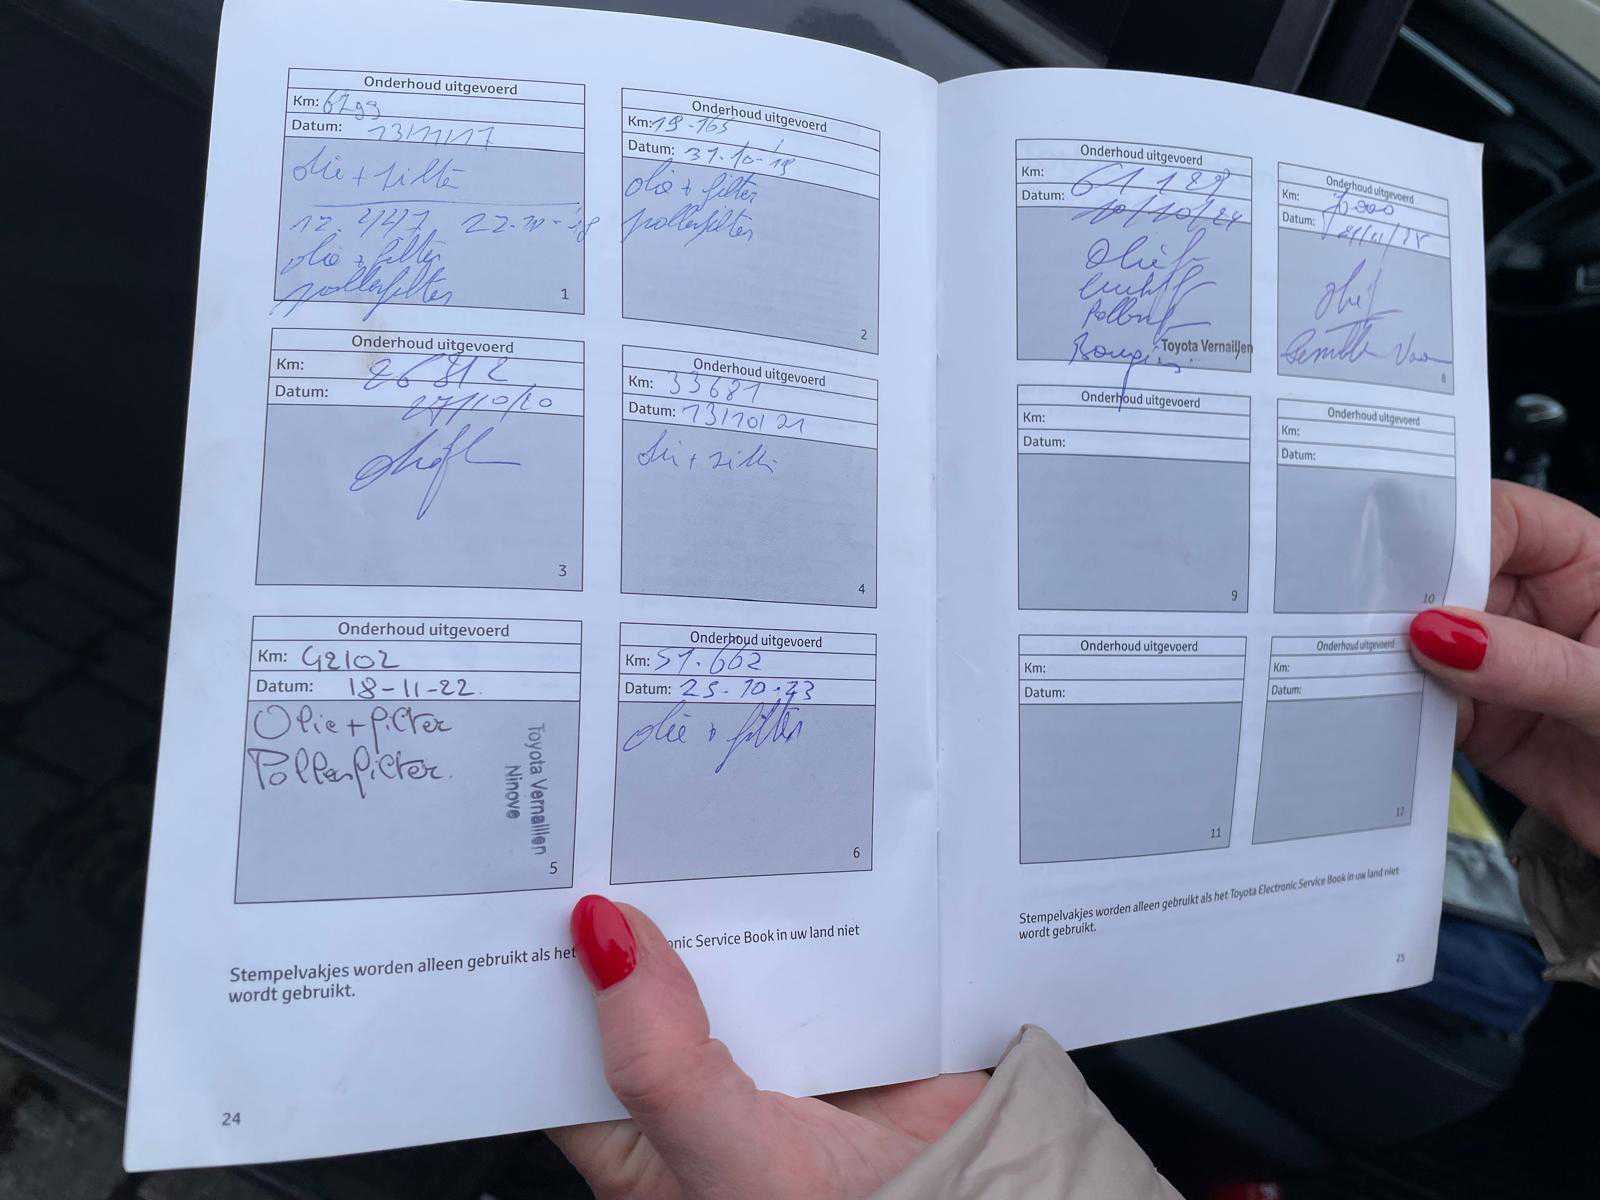 Onderhoud uitgevoerd
Km: 6299
Datum: 13/11/17
olie + filter
12.447 22-10-18
olie + filter
pollenfilter
1
Onderhoud uitgevoerd
Km: 19-165
Datum: 31-10-19
olie + filter
pollenfilter
2
Onderhoud uitgevoerd
Km: 26812
Datum: 27/10/20
3
Onderhoud uitgevoerd
Km: 33681
Datum: 13/10/21
4
Onderhoud uitgevoerd
Km: 42102
Datum: 18-11-22.
Olie + filter
Pollenfilter.
Toyota Vernaillen
Ninove
5
Onderhoud uitgevoerd
Km: 51.662
Datum: 25-10-23
olie + filter
6
Stempelvakjes worden alleen gebruikt als het
onic Service Book in uw land niet
wordt gebruikt.
24
Onderhoud uitgevoerd
Km: 61129
Datum: 10/10/24
Toyota Vernaillen
Onderhoud uitgevoerd
Km:
Datum:
8
Onderhoud uitgevoerd
Km:
Datum:
9
Onderhoud uitgevoerd
Km:
Datum:
10
Onderhoud uitgevoerd
Km:
Datum:
11
Onderhoud uitgevoerd
Km:
Datum:
12
Stempelvakjes worden alleen gebruikt als het Toyota Electronic Service Book in uw land niet
wordt gebruikt.
25